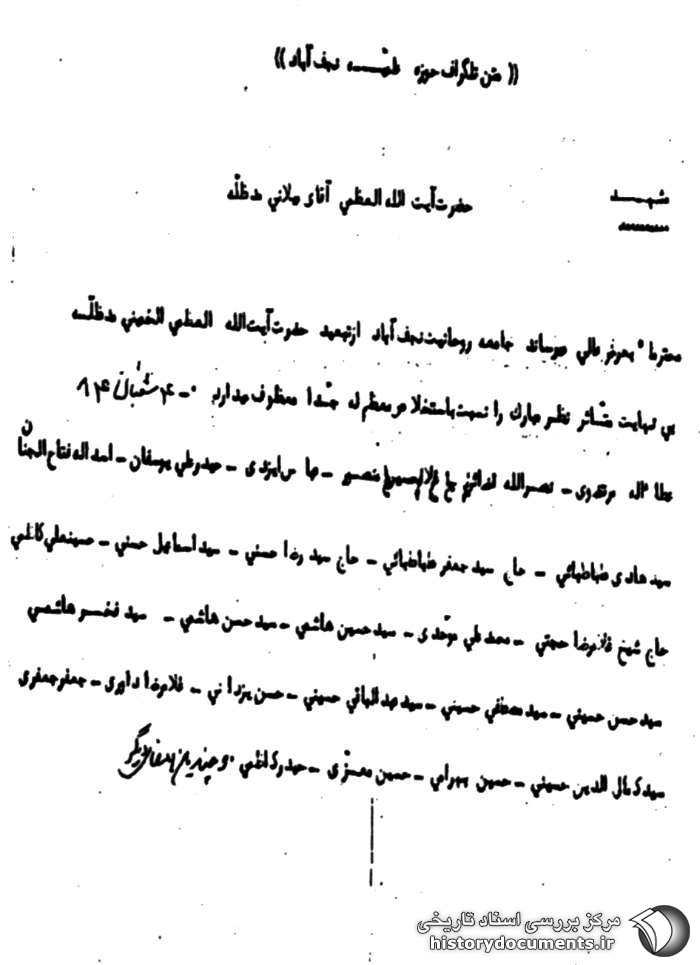 (( متن تلگراف حوزه علمیــه نجف آباد ))
مشهــد
حضرت آیت الله العظمی آقای میلانی مدظلّه
محترما" بعرض عالی میرساند جامعه روحانیت نجف آباد از تبعید حضرت آیت الله العظمی الخمینی مدظلّــه
بی نهایت متّاثر نظر مبارك را نسبت باستخلاص معظم له جـّدا معطوف میدارد ۰ - ۴ شعبان ۸۴
عطاءاله مرتضوی - نصرالله - حاج غلامحسین منصور - ایزدی - حیدرعلی یوسفان - اسداله فتاح الجنان
سید هادی طباطبائی - حاج سید جعفر طباطبائی - حاج سید رضا حسنی - سید اسماعیل حسنی - حسینعلی کاظمی
حاج شیخ غلامرضا حجتی - محمد علی موحّدی - سید حسین هاشمی - سید حسن هاشمی - سید فخــر هاشمی
سید حسن حسینی - سید مصطفی حسینی - سید عبدالباقی حسینی - حسن یزدانی - غلامرضا داوری - جعفر جعفری
سید کمال الدین حسینی - حسین بهرامی - حسین معـزّی - حیدر کاظمی ۰ و چندین امضای دیگر
مرکز بررسی اسناد تاریخی
historydocuments.ir